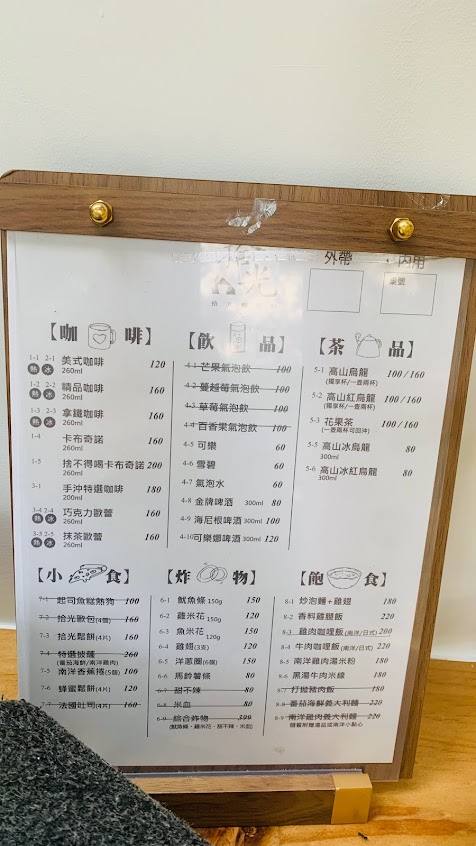 拾光
外帶 內用
桌號
【咖啡】
1-1 2-1 美式咖啡 120
熱 冰 260ml
1-2 2-2 精品咖啡 160
熱 冰 260ml
1-3 2-3 拿鐵咖啡 160
熱 冰 260ml
1-4 卡布奇諾 160
260ml
1-5 捨不得喝卡布奇諾 200
260ml
3-1 手沖特選咖啡 180
200ml
3-4 2-4 巧克力歐蕾 160
熱 冰 260ml
3-5 2-5 抹茶歐蕾 160
熱 冰 260ml
【飲品】
4-1 芒果氣泡飲 100
4-2 蔓越莓氣泡飲 100
4-3 草莓氣泡飲 100
4-4 百香果氣泡飲 100
4-5 可樂 60
4-6 雪碧 60
4-7 氣泡水 60
4-8 金牌啤酒 300ml 80
4-9 海尼根啤酒 300ml 100
4-10 可樂娜啤酒 300ml 120
【茶品】
5-1 高山烏龍 100/160
(獨享杯/一壺兩杯)
5-2 高山紅烏龍 100/160
(獨享杯/一壺兩杯)
5-3 花果茶 100/160
(一壺兩杯可回沖)
5-5 高山冰烏龍 80
300ml
5-6 高山冰紅烏龍 80
300ml
【小食】
7-1 起司魚糕熱狗 100
7-2 拾光歐包(4個) 160
7-3 拾光鬆餅(4片) 160
7-4 特選披薩 260
(蕃茄海鮮/南洋雞肉)
7-5 南洋香蕉捲(5個) 100
7-6 蜂蜜鬆餅(4片) 120
7-7 法國吐司(4片) 160
【炸物】
6-1 魷魚條 150g 150
6-2 雞米花 150g 120
6-3 魚米花 150
120g
6-4 雞翅(3支) 120
6-5 洋蔥圈(6個) 150
6-6 馬鈴薯條 80
6-7 甜不辣 80
6-8 米血 80
6-9 綜合炸物 300
(魷魚條、雞米花、甜不辣、米血)
【飽食】
8-1 炒泡麵+雞翅 180
8-2 香料雞腿飯 220
8-3 雞肉咖哩飯 (南洋/日式) 200
8-4 牛肉咖哩飯 (南洋/日式) 220
8-5 南洋雞肉湯米粉 180
8-6 黑湯牛肉米線 180
8-7 打拋豬肉飯 180
8-8 蕃茄海鮮義大利麵 220
8-9 南洋雞肉義大利麵 220
隨餐附贈湯品或南洋小點心